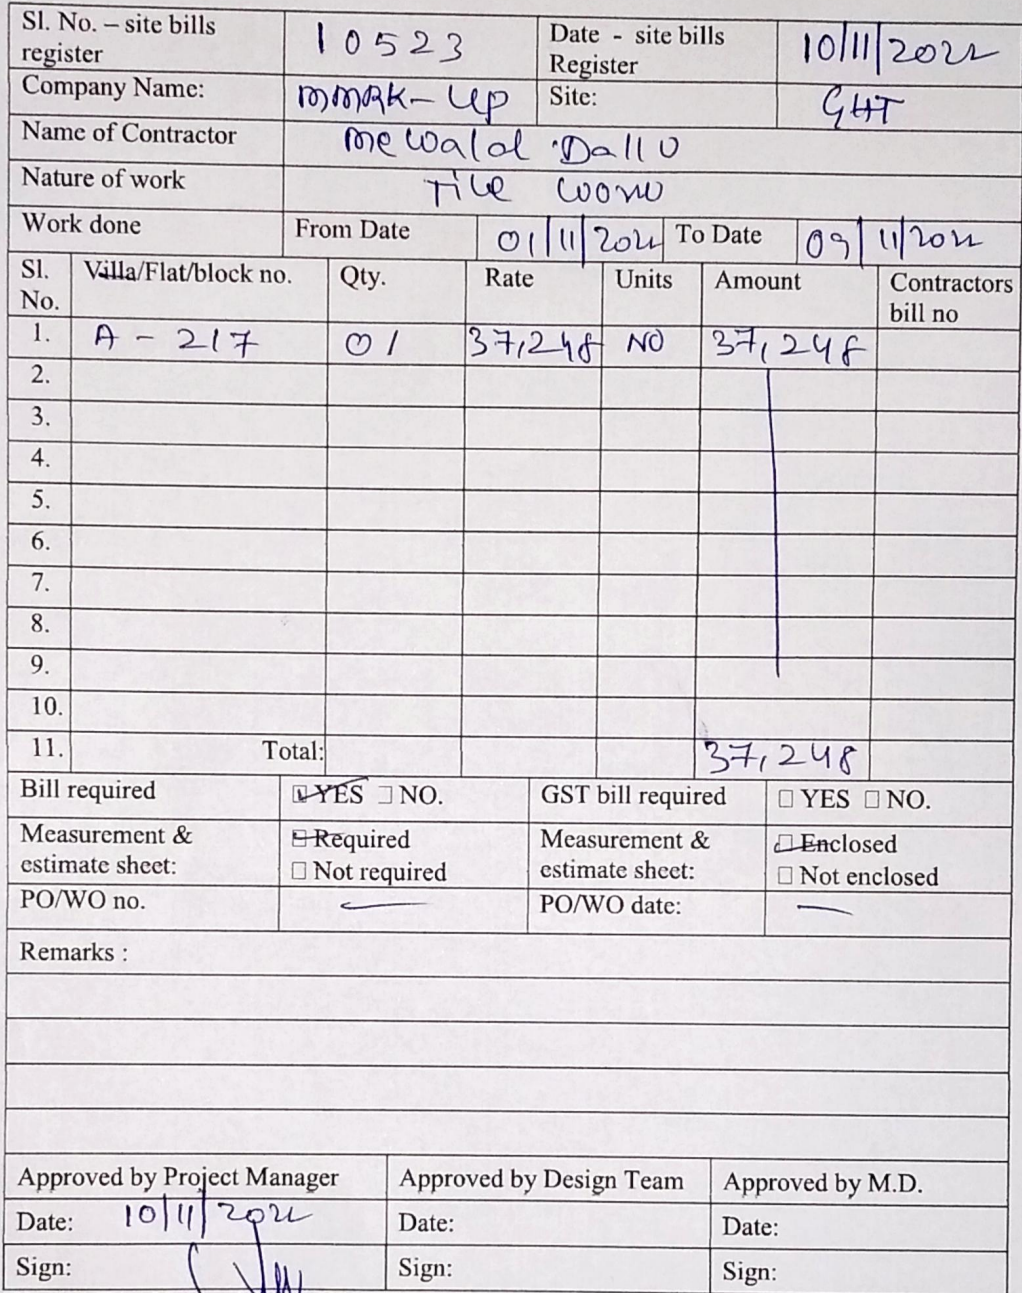 Sl. No. – site bills register 10523 Date - site bills Register 10/11/2022
Company Name: MMRK-Up Site: GHT
Name of Contractor Mewalal Dallu
Nature of work Tile work
Work done From Date 01/11/2022 To Date 09/11/2022
Sl. No. Villa/Flat/block no. Qty. Rate Units Amount Contractors bill no
1. A - 217 01 37,248 NO 37,248
2.
3.
4.
5.
6.
7.
8.
9.
10.
11. Total: 37,248
Bill required YES NO. GST bill required YES NO.
Measurement & estimate sheet: Required Not required Measurement & estimate sheet: Enclosed Not enclosed
PO/WO no. PO/WO date:
Remarks :
Approved by Project Manager Approved by Design Team Approved by M.D.
Date: 10/11/2022 Date: Date:
Sign: Sign: Sign: